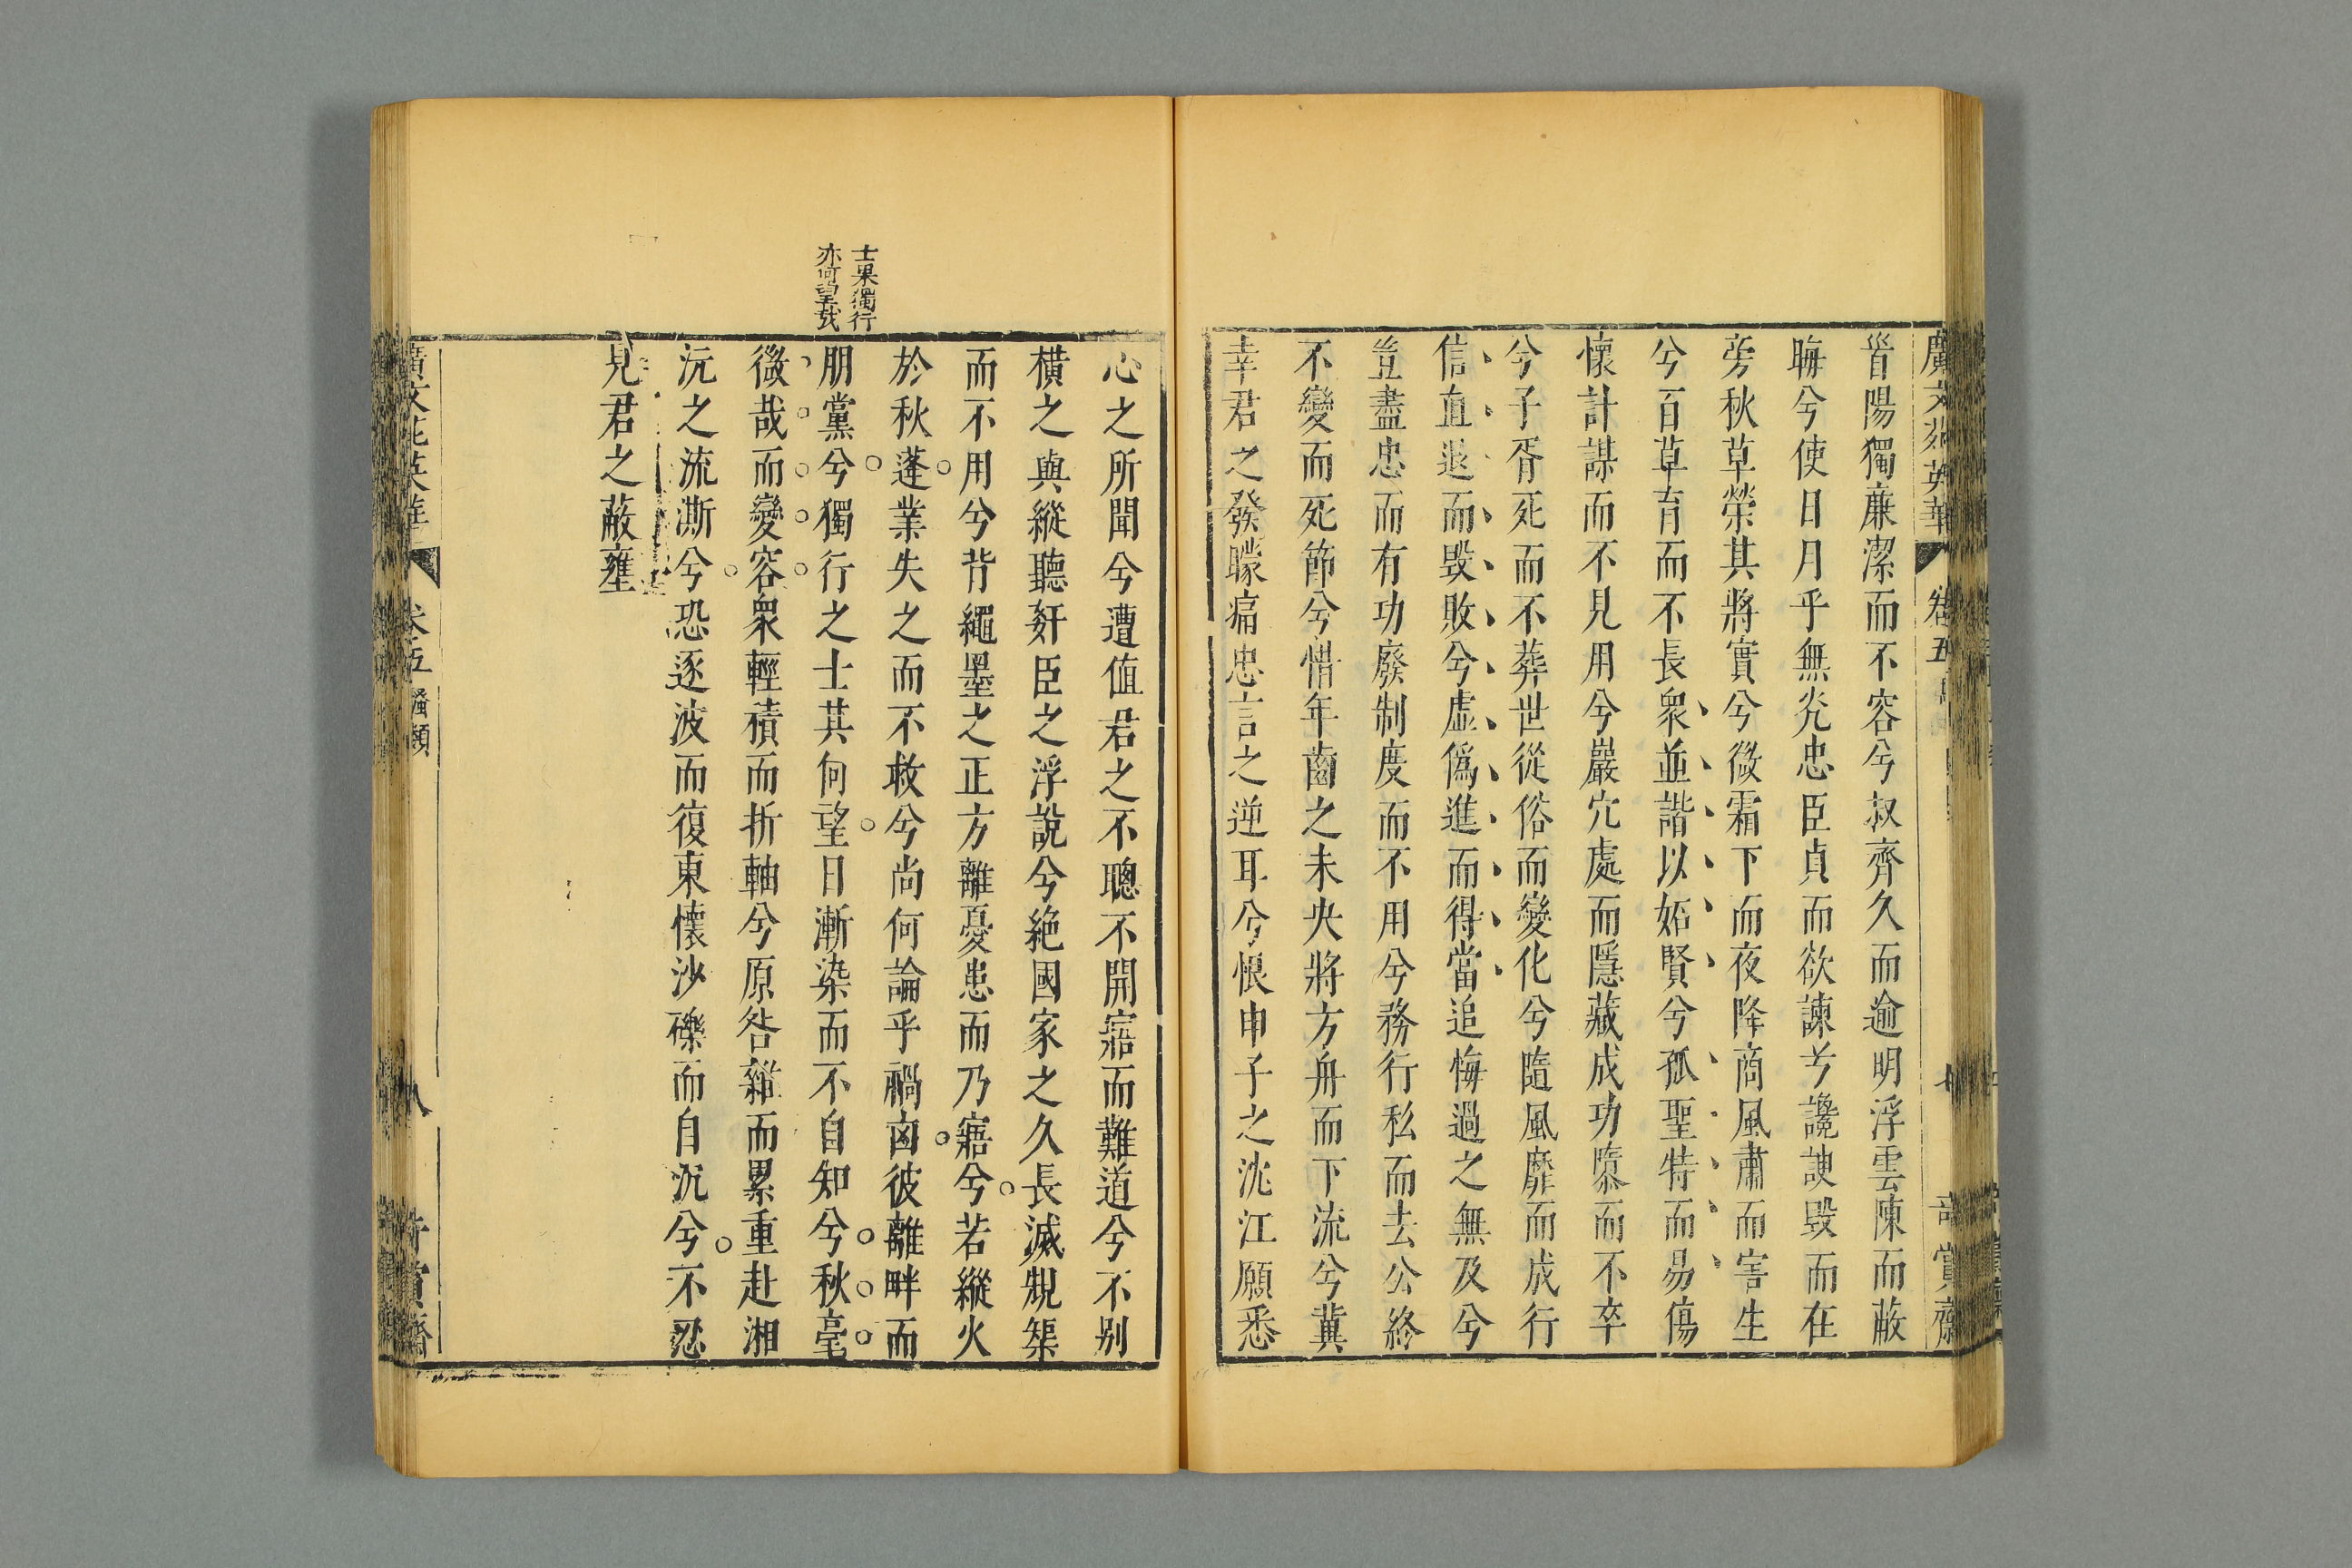 廣文苑英華 卷五 七 奇賞齋
首陽獨廉潔而不容兮叔齊久而逾明浮雲陳而蔽
晦兮使日月乎無光忠臣貞而欲諫兮讒諛毀而在
旁秋草榮其將實兮微霜下而夜降商風肅而害生
兮百草育而不長衆並諧以妬賢兮孤聖特而易傷
懷計謀而不見用兮巖穴處而隱藏成功隳而不卒
兮子胥死而不葬世從俗而變化兮隨風靡而成行
信直退而毀敗兮虛僞進而得當追悔過之無及兮
豈盡忠而有功廢制度而不用兮務行私而去公終
不變而死節兮惜年齒之未央將方舟而下流兮冀
幸君之發矇痛忠言之逆耳兮恨申子之沈江願悉
心之所聞兮遭值君之不聰不開寤而難道兮不别
橫之與縱聽奸臣之浮說兮絶國家之久長滅規榘
而不用兮背繩墨之正方離憂患而乃寤兮若縱火
於秋蓬業失之而不救兮尚何論乎禍凶彼離畔而
朋黨兮獨行之士其何望日漸染而不自知兮秋毫
微哉而變容衆輕積而折軸兮原咎雜而累重赴湘
沅之流澌兮恐逐波而復東懷沙礫而自沉兮不忍
見君之蔽壅
士果獨行
亦何望哉
廣文苑英華 卷五 騷類 八 奇賞齋